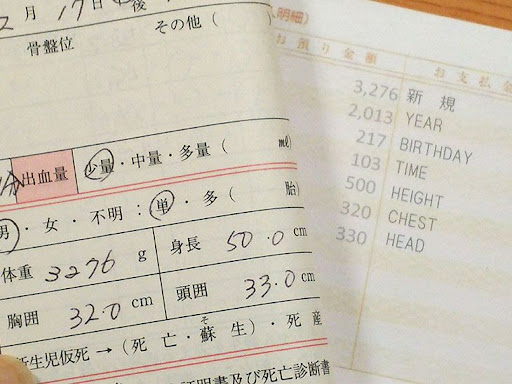 月 17日 後
骨盤位 その他(
出血量 少量・中量・多量( ml)
男・女・不明:単・多( 胎)
体重 3276 g 身長 50.0 cm
胸囲 32.0 cm 頭囲 33.0 cm
新生児仮死→(死亡・蘇生)・死産
そ
証明書及び死亡診断書
明細)
お預り金額 お支払金
3,276 新 規
2,013 YEAR
217 BIRTHDAY
103 TIME
500 HEIGHT
320 CHEST
330 HEAD